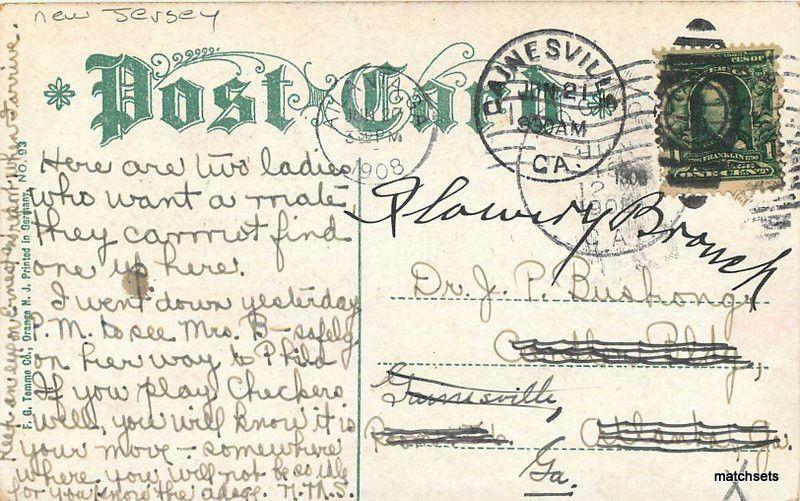 new Jersey
Post Card
GAINESVILLE
JUN 21
1908
830AM
GA.
1908
FRANKLIN
ONE CENT
Here are two ladies
who want a mate
they cannot find
one up here.
I went down yesterday
P.M. to see Mrs. B - safely
on her way to Phila
If you play Checkers
well, you will know it is
your move - somewhere
where you will not be so idle
for you know the adage. N.M.S.
Keep an eye on Ernest want when I arrive.
F. G. Temme Co., Orange N. J. Printed in Germany. NO. 93
Flowery Branch
Dr. J. P. Bushong,
Candler Bldg,
Gainesville,
Atlanta, Ga.
Ga.
matchsets